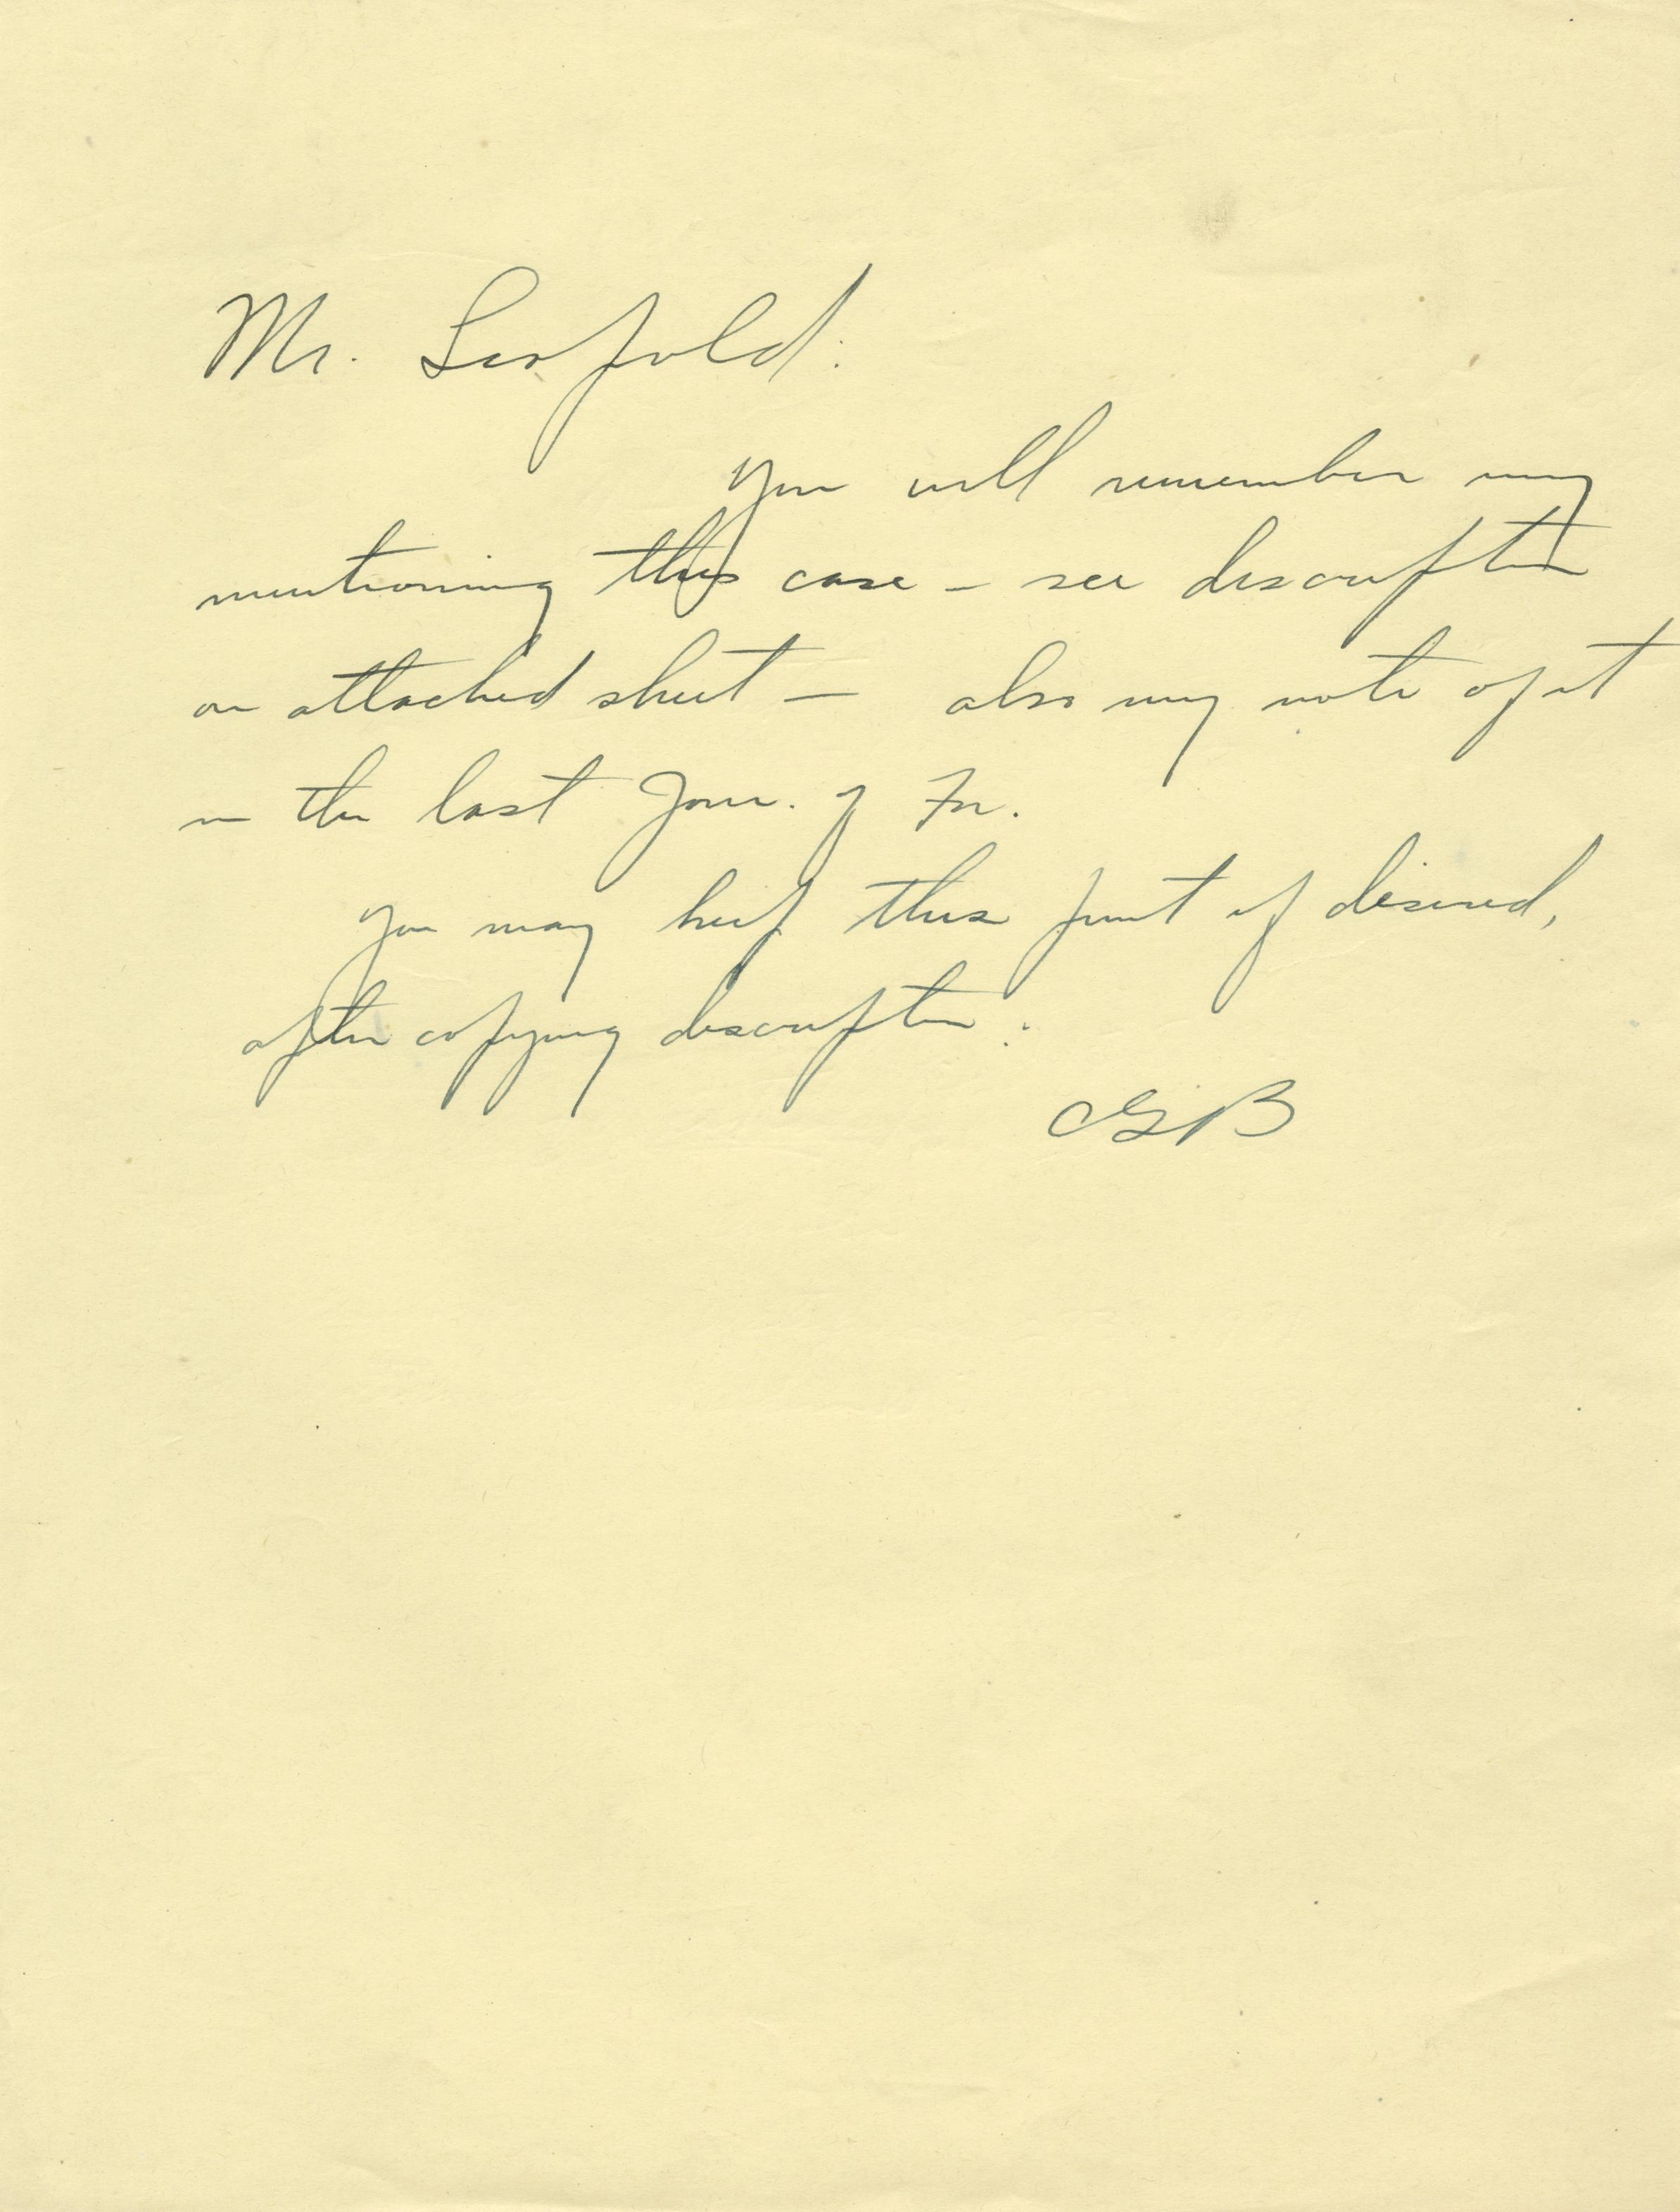 Mr. Leopold:
You will remember my
mentioning this case – see description
on attached sheet – also my note of it
in the last Jour. of For.
You may keep this print if desired,
after copying description.
CGB